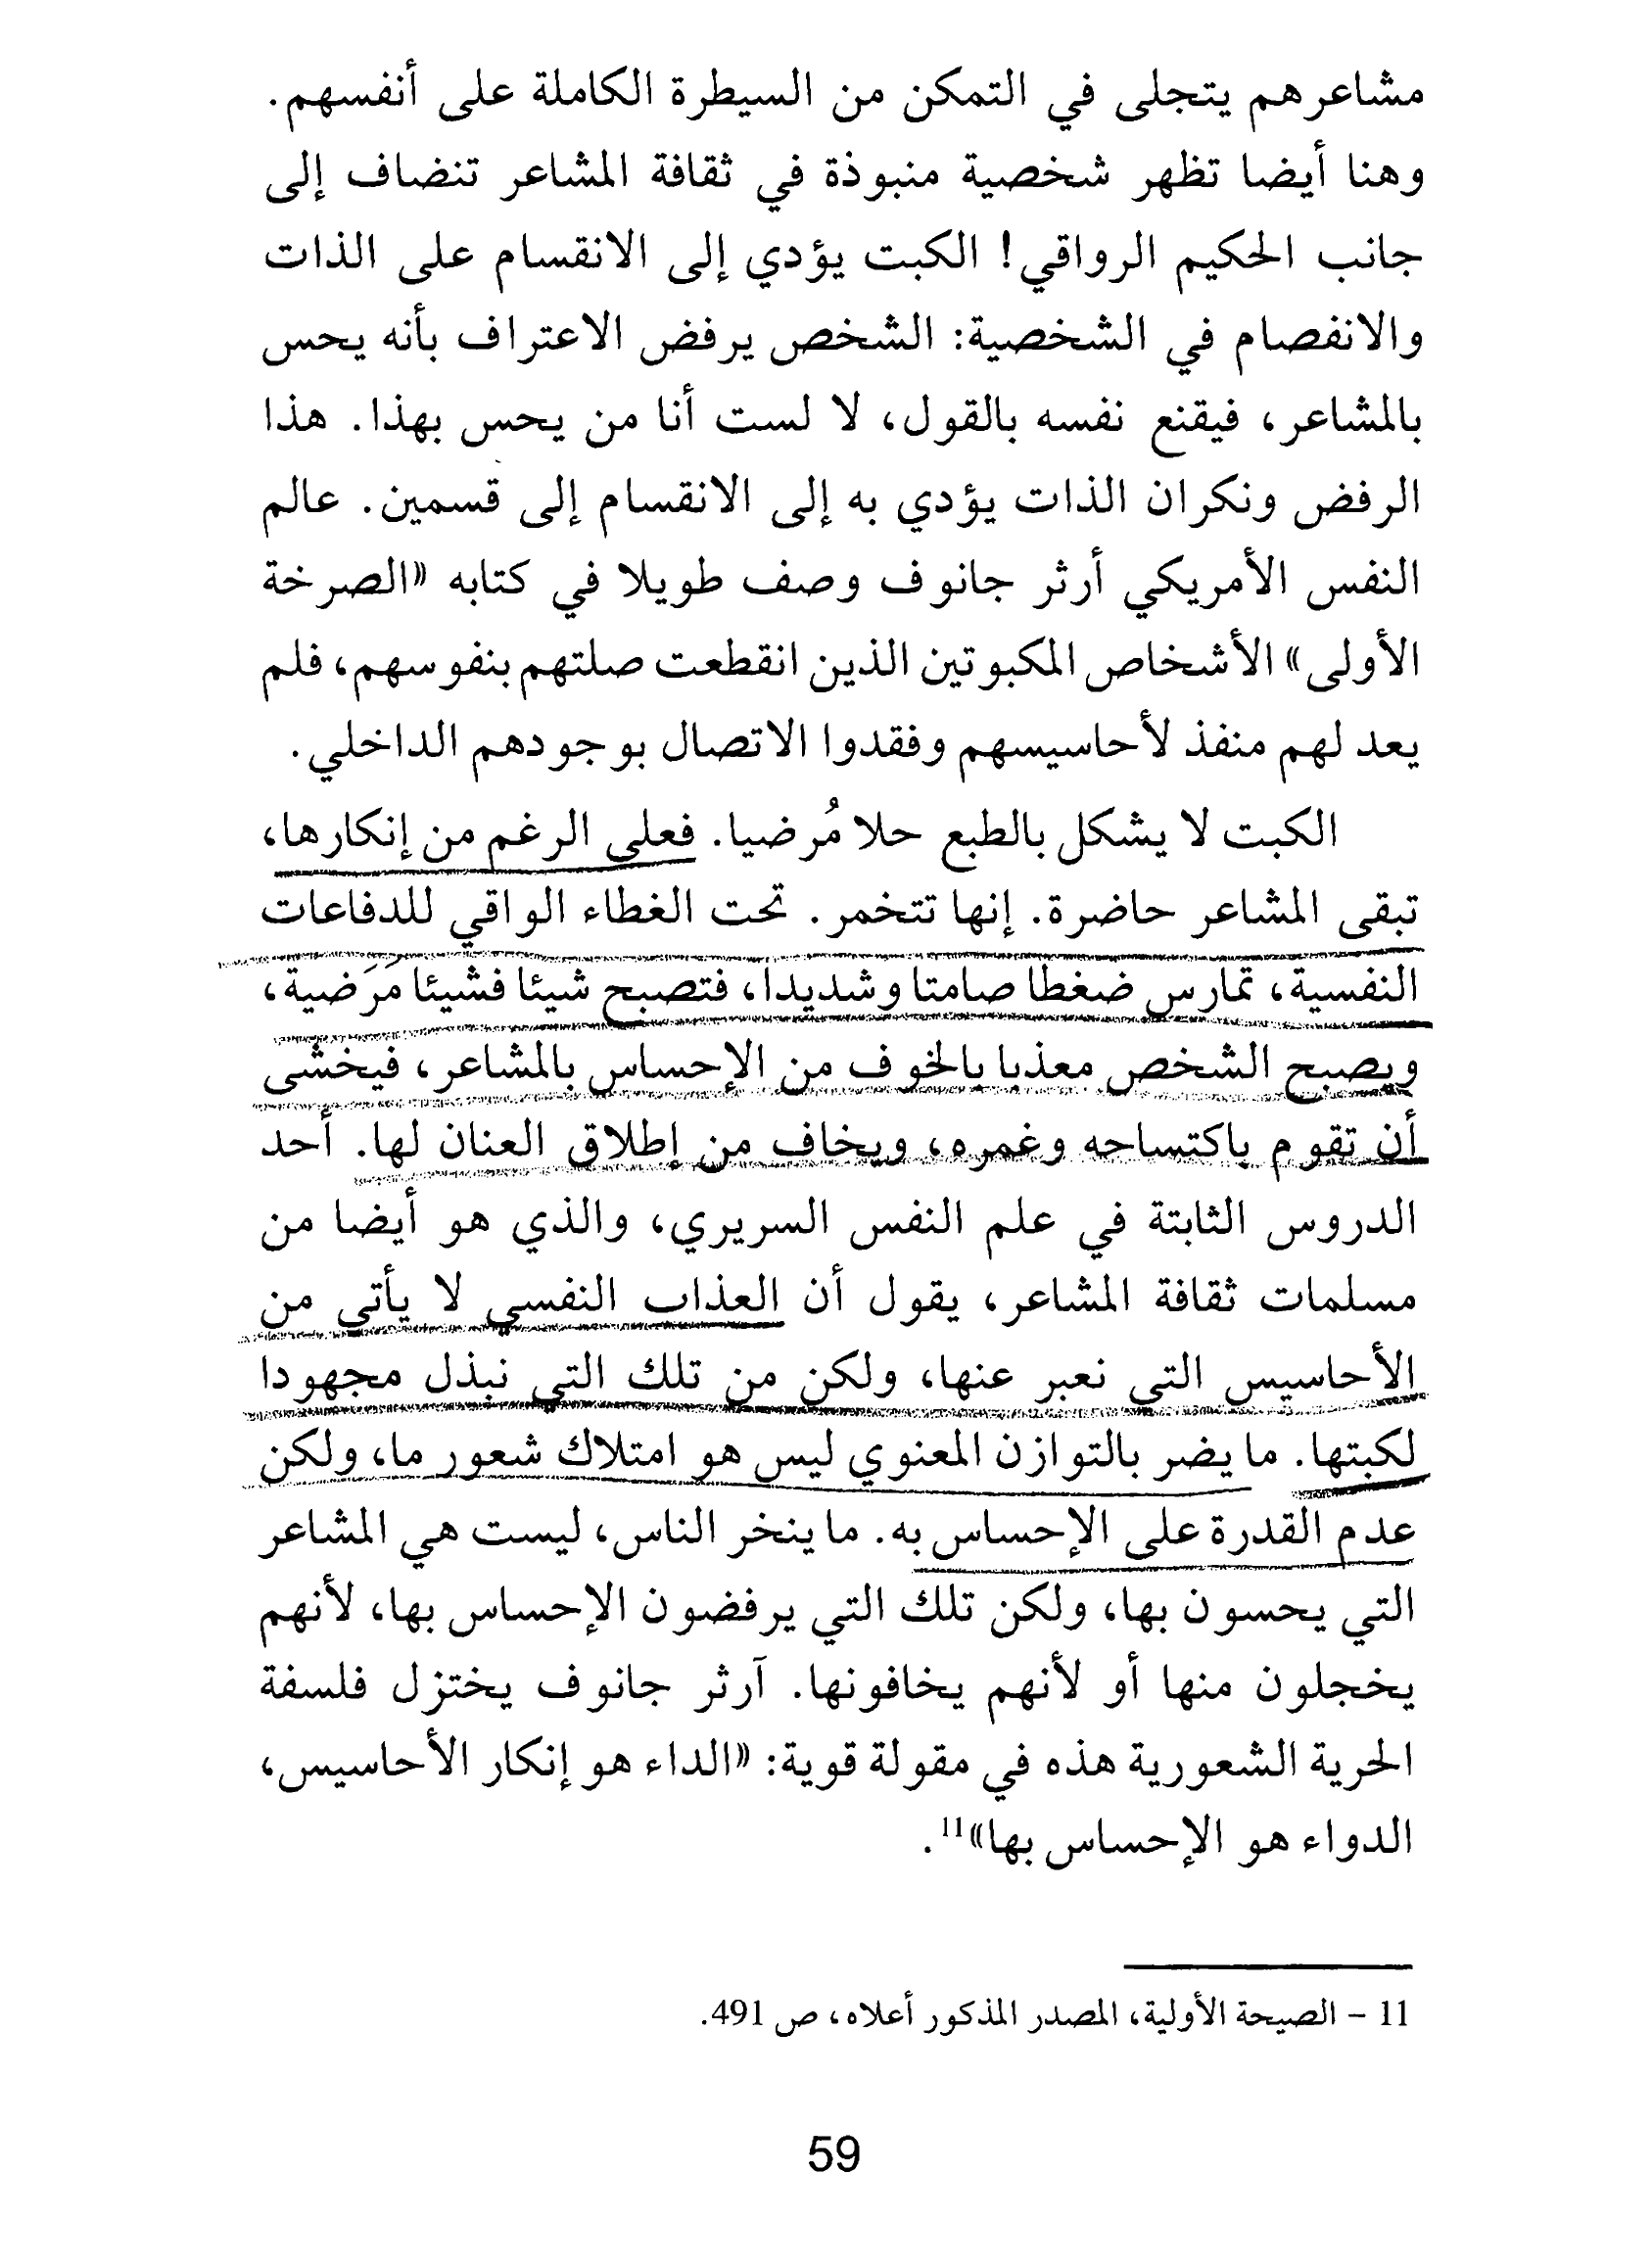 مشاعرهم يتجلى في التمكن من السيطرة الكاملة على أنفسهم.
وهنا أيضا تظهر شخصية منبوذة في ثقافة المشاعر تنضاف إلى
جانب الحكيم الرواقي! الكبت يؤدي إلى الانقسام على الذات
والانفصام في الشخصية: الشخص يرفض الاعتراف بأنه يحس
بالمشاعر، فيقنع نفسه بالقول، لا لست أنا من يحس بهذا. هذا
الرفض ونكران الذات يؤدي به إلى الانقسام إلى قسمين. عالم
النفس الأمريكي أرثر جانوف وصف طويلا في كتابه «الصرخة
الأولى» الأشخاص المكبوتين الذين انقطعت صلتهم بنفوسهم، فلم
يعد لهم منفذ لأحاسيسهم وفقدوا الاتصال بوجودهم الداخلي.
الكبت لا يشكل بالطبع حلا مُرضيا. فعلى الرغم من إنكارها،
تبقى المشاعر حاضرة. إنها تتخمر. تحت الغطاء الواقي للدفاعات
النفسية، تمارس ضغطا صامتا وشديدا، فتصبح شيئا فشيئا مَرَضية،
ويصبح الشخص معذبا بالخوف من الإحساس بالمشاعر، فيخشى
أن تقوم باكتساحه وغمره، ويخاف من إطلاق العنان لها. أحد
الدروس الثابتة في علم النفس السريري، والذي هو أيضا من
مسلمات ثقافة المشاعر، يقول أن العذاب النفسي لا يأتي من
الأحاسيس التي نعبر عنها، ولكن من تلك التي نبذل مجهودا
لكبتها. ما يضر بالتوازن المعنوي ليس هو امتلاك شعور ما، ولكن
عدم القدرة على الإحساس به. ما ينخر الناس، ليست هي المشاعر
التي يحسون بها، ولكن تلك التي يرفضون الإحساس بها، لأنهم
يخجلون منها أو لأنهم يخافونها. آرثر جانوف يختزل فلسفة
الحرية الشعورية هذه في مقولة قوية: «الداء هو إنكار الأحاسيس،
الدواء هو الإحساس بها»11.
11 - الصيحة الأولية، المصدر المذكور أعلاه، ص 491.
59